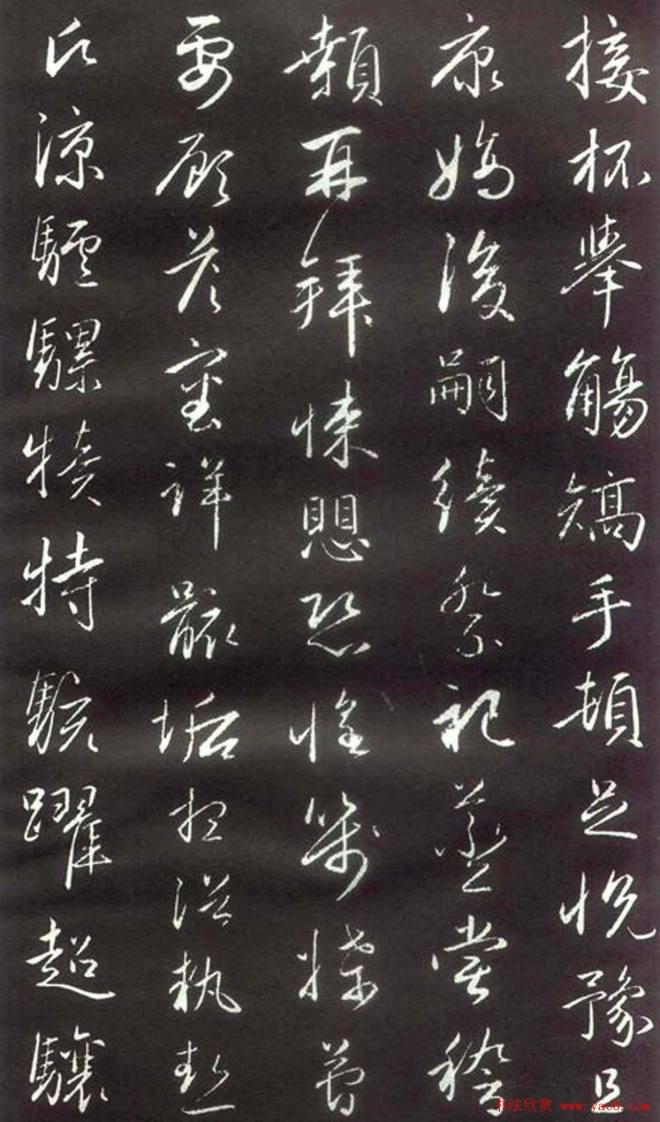 接杯舉觴矯手頓足悦豫且
康嫡後嗣續祭祀蒸嘗稽
顙再拜悚愳恐惶箋牒簡
要顧答審詳骸垢想浴執熱
願涼驢騾犢特駭躍超驤
书法欣赏 www.yac8.com